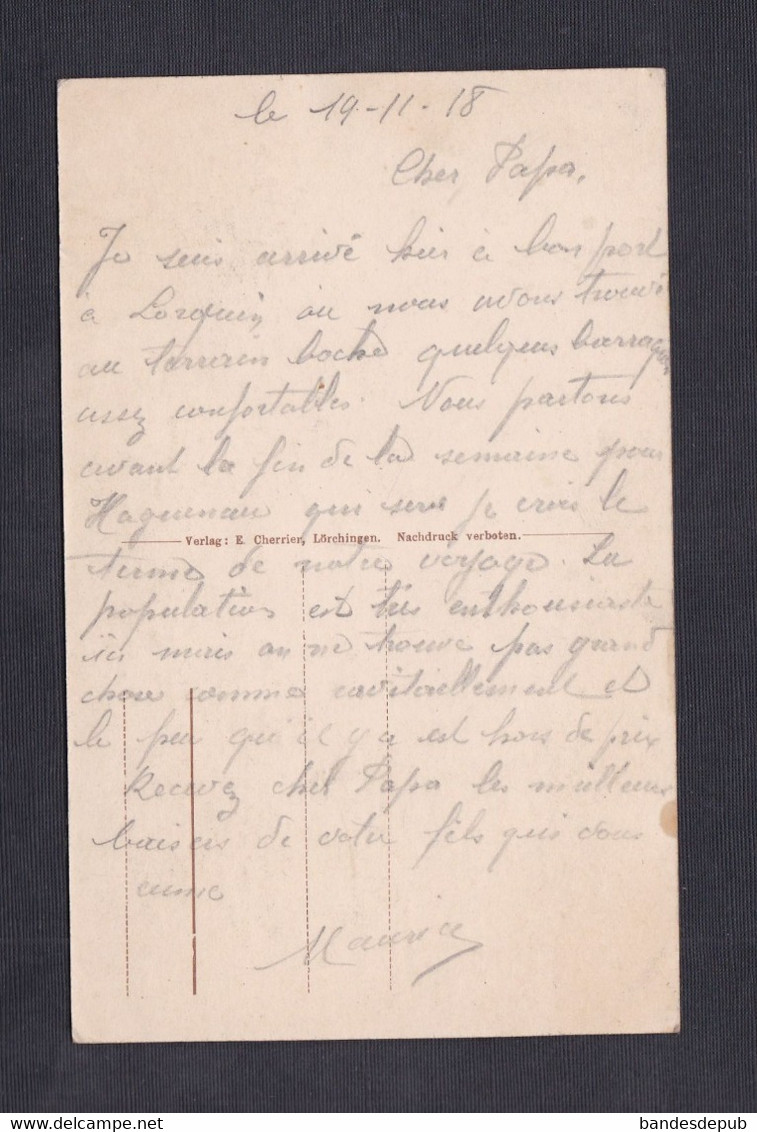 le 19-11-18
Cher Papa,
Je suis arrivé hier à bon port
à Lorquin où nous avons trouvé
au terrain boche quelques barraques
assez confortables. Nous partons
avant la fin de la semaine pour
Haguenau qui sera je crois le
Verlag: E. Cherrier, Lörchingen. Nachdruck verboten.
terme de notre voyage. La
population est très enthousiaste
ici mais on ne trouve pas grand
chose comme ravitaillement et
le peu qu'il y a est hors de prix
Recevez cher Papa les meilleurs
baisers de votre fils qui vous
aime
Maurice
bandesdepub
Delcampe.net